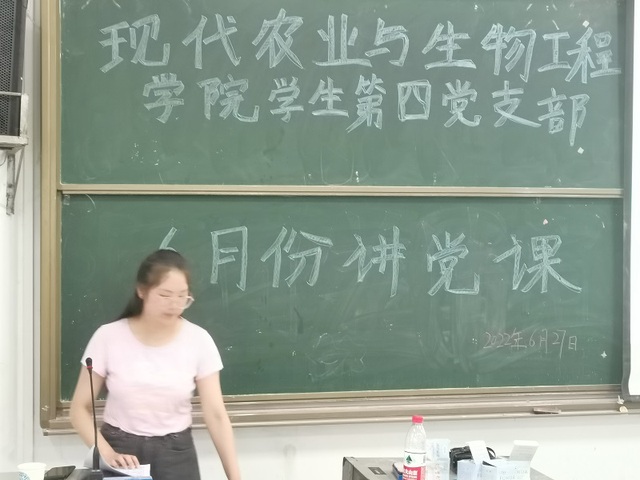 现代农业与生物工程
学院学生第四党支部
6月份讲党课
2022年6月27日